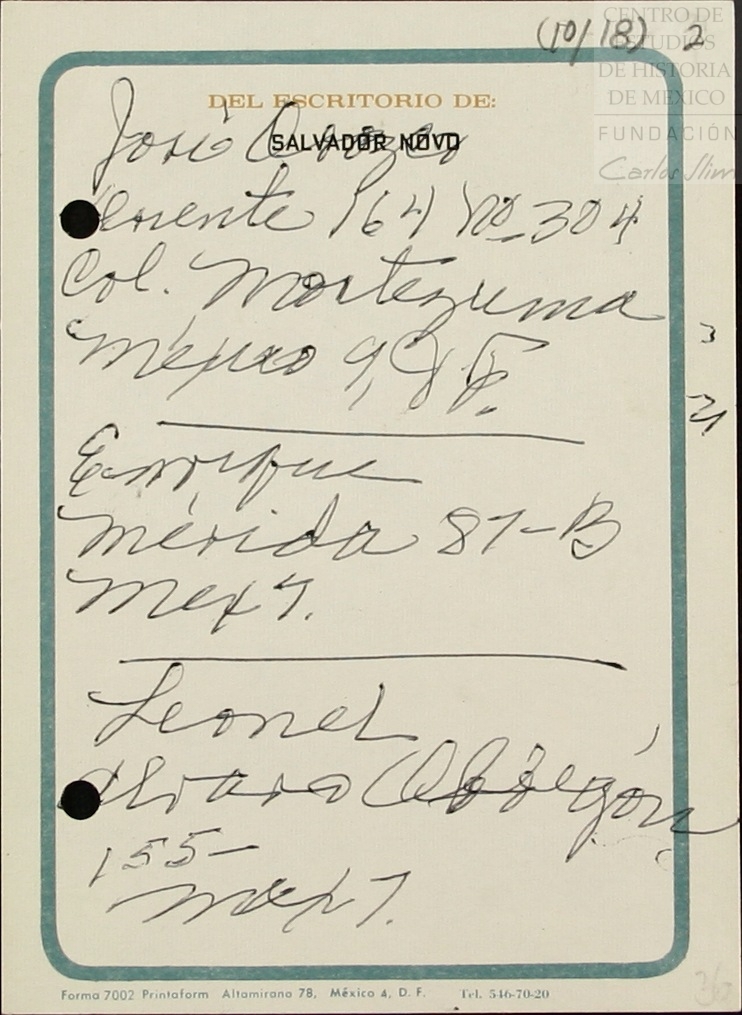 (10/18) 2
CENTRO DE
ESTUDIOS
DE HISTORIA
DE MEXICO
FUNDACIÓN
Carlos Slim
DEL ESCRITORIO DE:
SALVADOR NOVO
José Orozco
Oriente 164 No. 304
Col. Moctezuma
México 9, D.F.
Enrique
Mérida 87-B
Mex 7.
Leonel
Alvaro Obregón
155-
Mex 7.
Forma 7002 Printaform Altamirano 78, México 4, D. F. Tel. 546-70-20
36